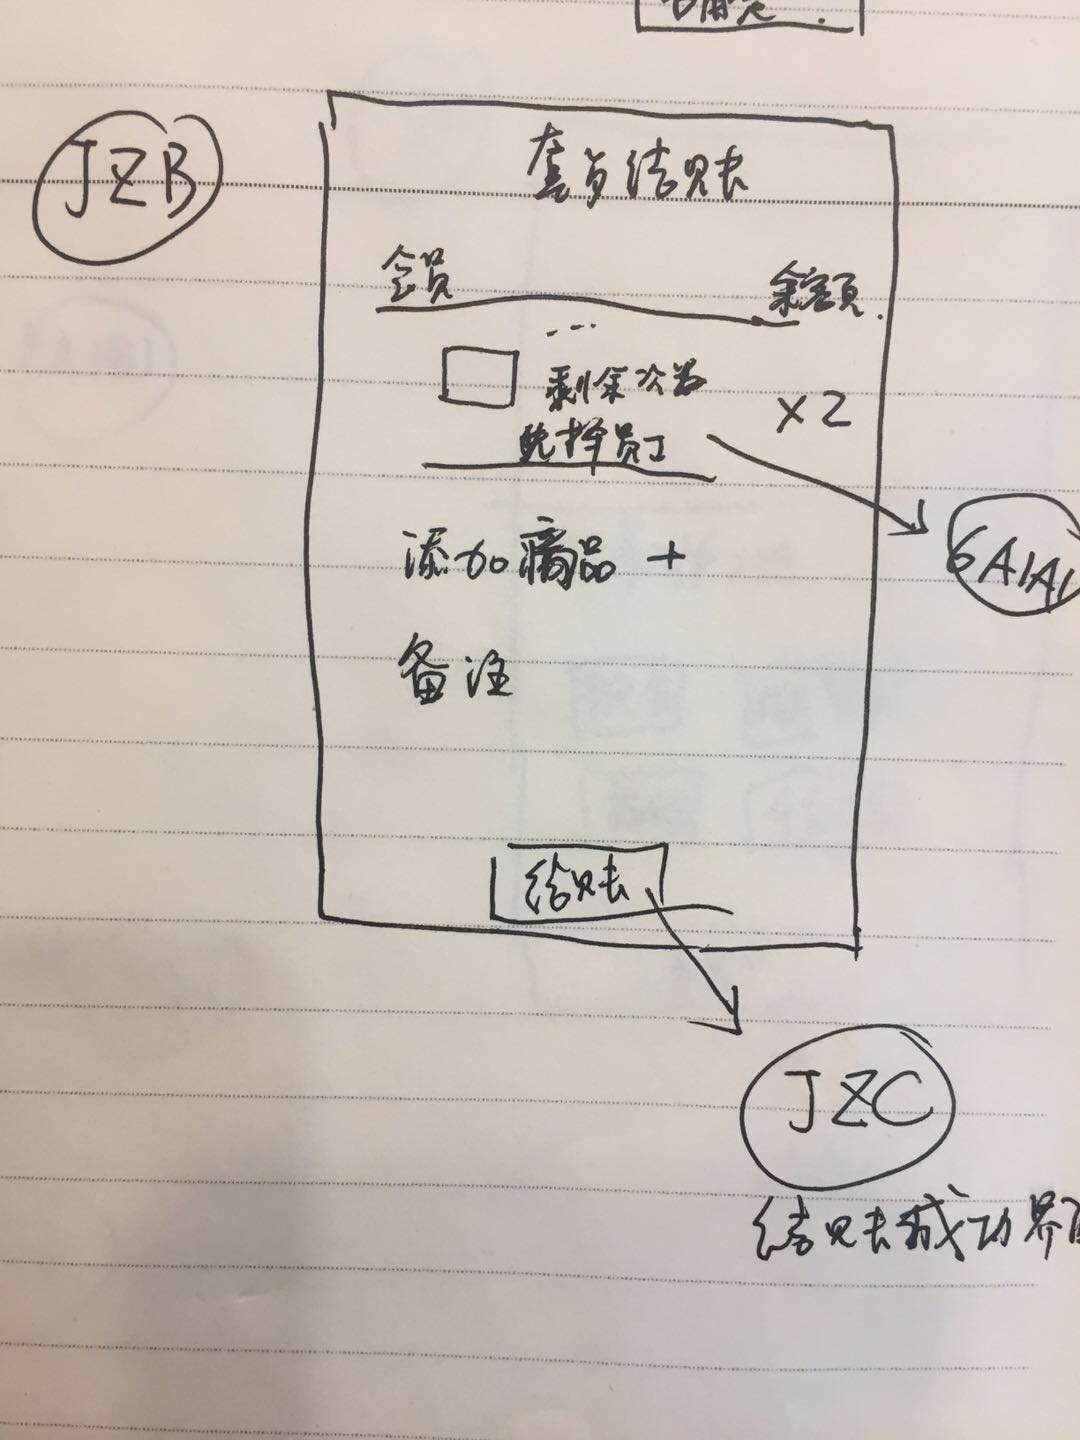 JZB
会员结账
会员 余额
...
剩余次数
×2
选择员工
6A1A1
添加商品 +
备注
结账
JZC
结账成功界面